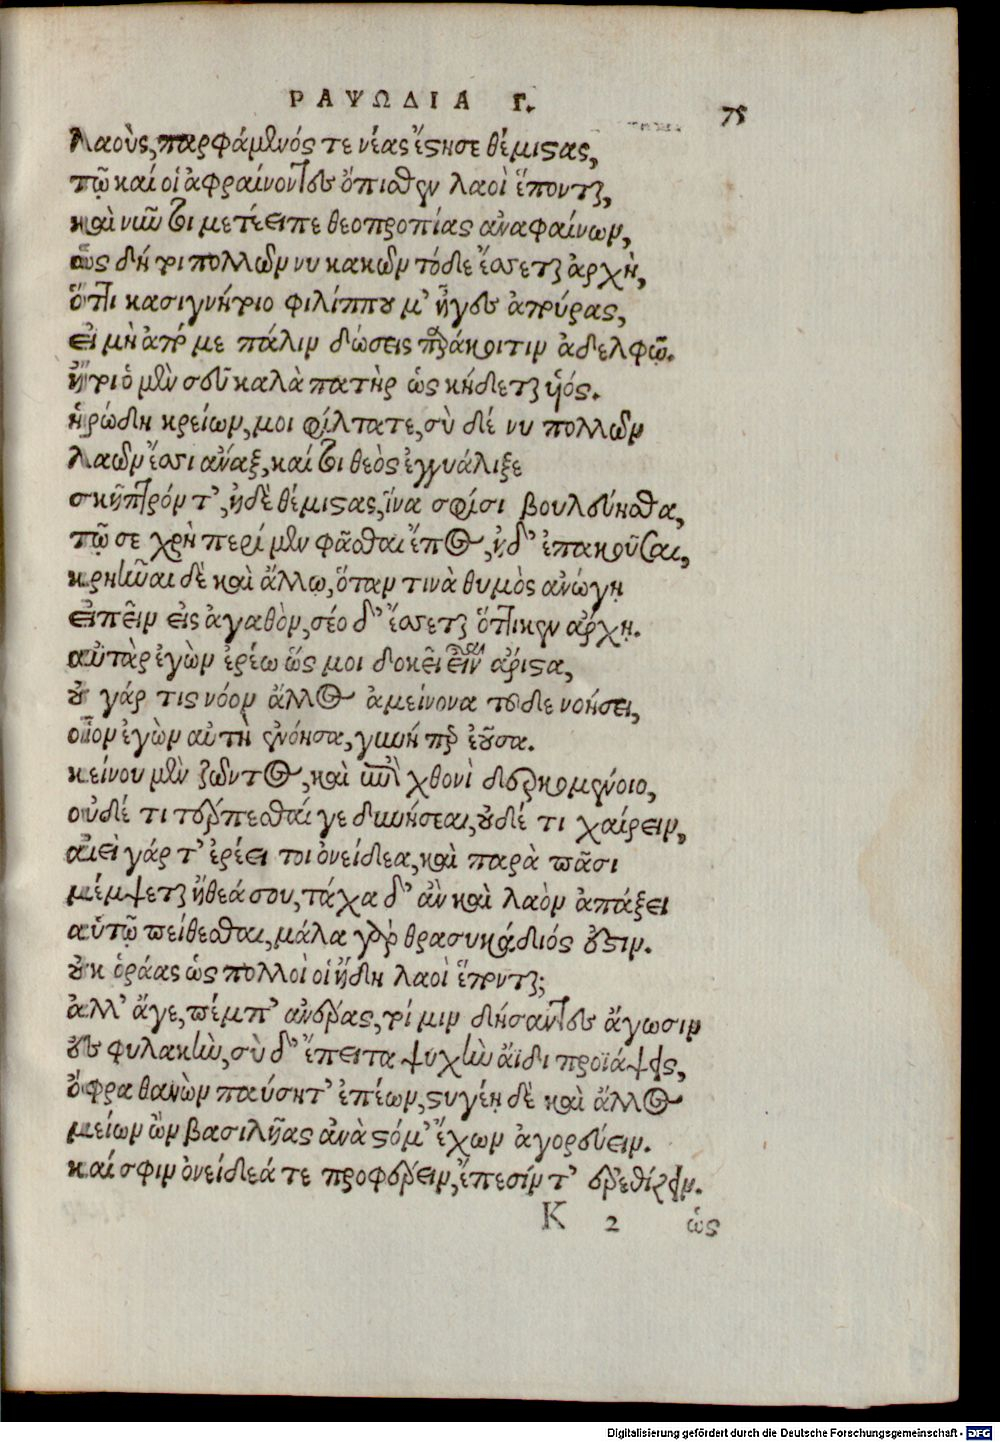 ΡΑΨΩΔΙΑ Γ. 75
λαοὺς, παρφάμενός τε νέας ἔστησε θέμιστας,
τῷ καί οἱ ἀφραίνοντες ὄπισθεν λαοὶ ἕπονται,
καὶ νῶϊν μετέειπε θεοπροπίας ἀναφαίνων,
ὣς δή τι πολλῶν νυ κακῶν τόδε ἔσσεται ἀρχὴ,
ὅττι κασιγνήτιο φιλίππου μ' ἦγες ἀτύρας,
εἰ μὴ ἀτάρ με πάλιν δώσεις πρὸς ἄκοιτιν ἀδελφῷ.
ἤτι ὁ μὲν σεῦ καλὰ πατὴρ ὡς κήδεται υἱός.
ἡρώδη κρείων, μοι φίλτατε, σὺ δέ νυ πολλῶν
λαῶν ἔσσι ἄναξ, καί τοι θεὸς ἐγγυάλιξε
σκῆπτρόν τ', ἠδὲ θέμιστας, ἵνα σφίσι βουλεύησθα,
τῷ σε χρὴ περί μὲν φᾶσθαι ἔπος, ἠδ' ἐπακοῦσαι,
κρηῆναι δὲ καὶ ἄλλῳ, ὅταν τινὰ θυμὸς ἀνώγῃ
εἰπεῖν εἰς ἀγαθὸν, σέο δ' ἔσσεται ὅττι κεν ἄρχῃ.
αὐτὰρ ἐγὼν ἐρέω ὥς μοι δοκεῖ εἶναι ἄριστα,
οὐ γάρ τις νόον ἄλλος ἀμείνονα τοῦδε νοήσει,
οἷον ἐγὼν αὐτὴ ἐνόησα, γυνή περ ἐοῦσα.
κείνου μὲν ζῶντος, καὶ ἐπὶ χθονὶ δερκομένοιο,
οὐδέ τι τέρπεσθαί γε δυνήσεαι, οὐδέ τι χαίρειν,
αἰεὶ γάρ τ' ἐρέει τοι ὀνείδεα, καὶ παρὰ πᾶσι
μέμψεται ἤθεά σου, τάχα δ' ἂν καὶ λαὸν ἀπάξει
αὑτῷ πείθεσθαι, μάλα γὰρ θρασυκάρδιός ἐστιν.
οὐκ ὁράας ὡς πολλοὶ οἱ ἤδη λαοὶ ἕπονται;
ἀλλ' ἄγε, πέμπ' ἄνδρας, τί μιν δήσαντες ἄγωσιν
ἐς φυλακὴν, σὺ δ' ἔπειτα ψυχὴν ἄϊδι προϊάψεις,
ὄφρα θανὼν παύσητ' ἐπέων, στυγέῃ δὲ καὶ ἄλλος
μείων ὢν βασιλῆας ἀνὰ στόμ' ἔχων ἀγορεύειν.
καί σφιν ὀνείδεά τε προφέρειν, ἔπεσίν τ' ἐρεθίζειν.
Κ 2 ὡς
Digitalisierung gefördert durch die Deutsche Forschungsgemeinschaft - DFG